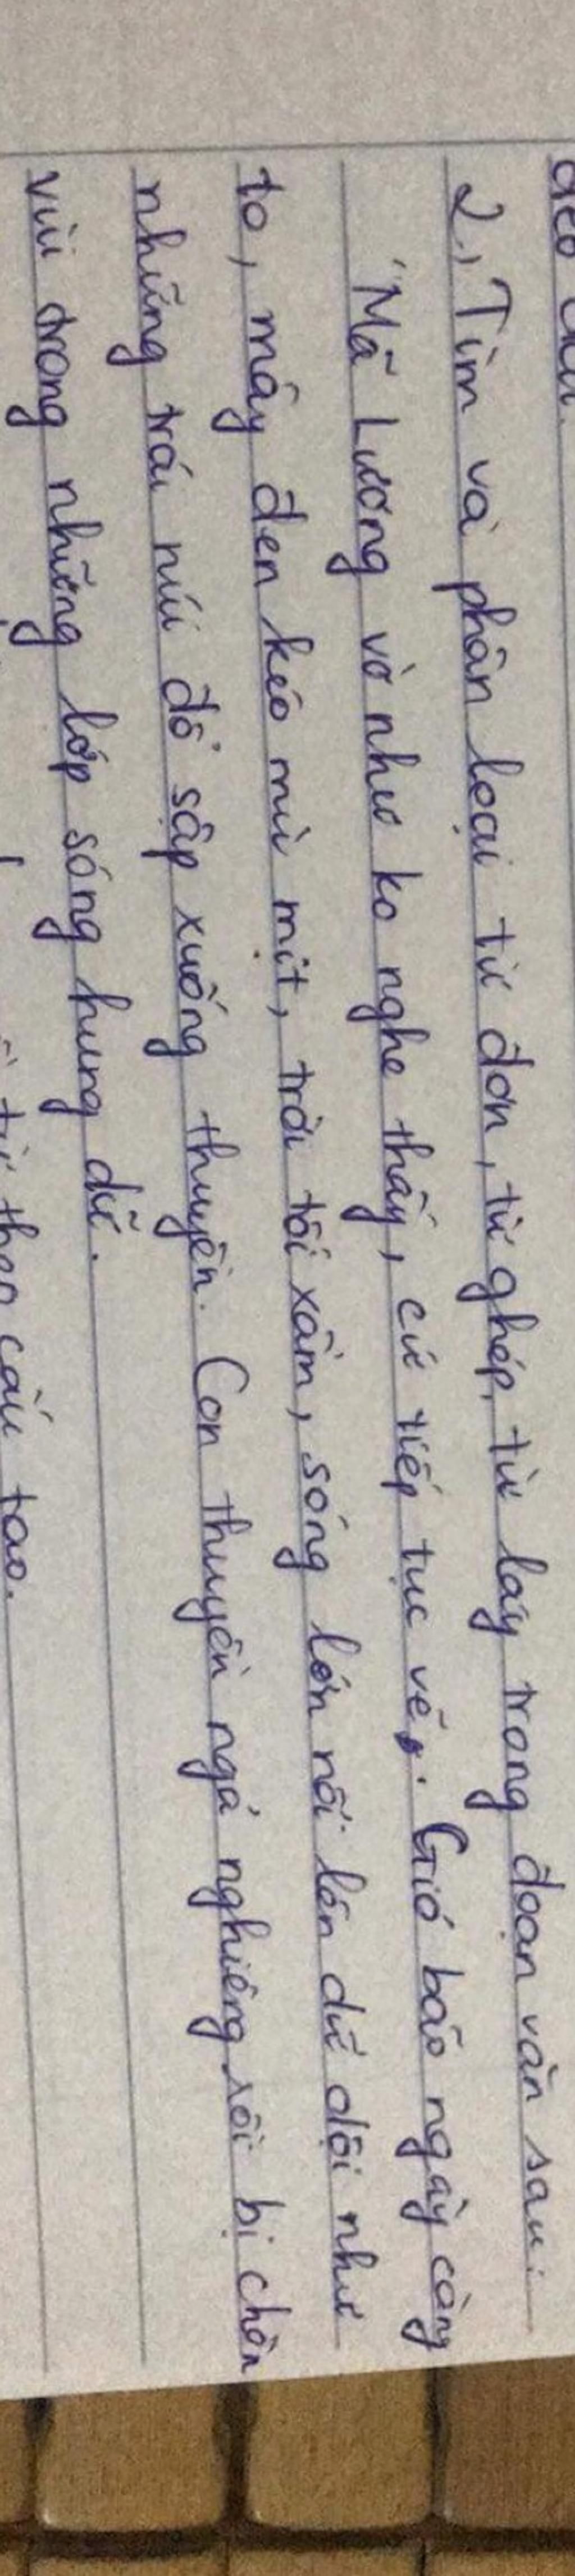 2, Tìm và phân loại từ đơn, từ ghép, từ láy trong đoạn văn sau:
"Mã Lương vờ như ko nghe thấy, cứ tiếp tục vẽ. Gió bão ngày càng
to, mây đen kéo mù mịt, trời tối xầm, sóng lớn nổi lên dữ dội như
những trái núi đổ sập xuống thuyền. Con thuyền ngả nghiêng rồi bị chôn
vùi trong những lớp sóng hung dữ.
từ theo cấu tạo.